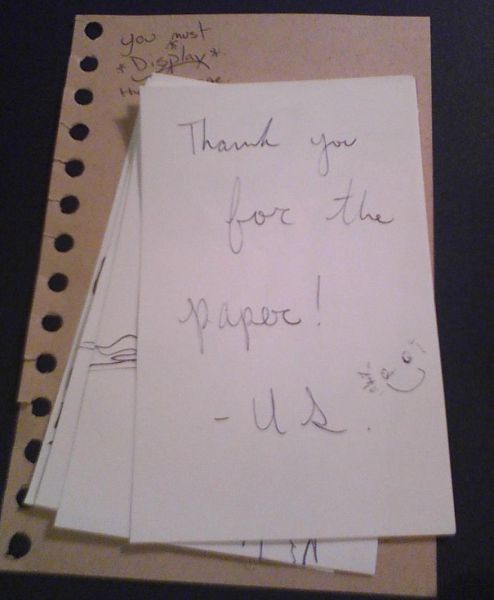 you must
*Display*
Thank you
for the
paper!
- US.